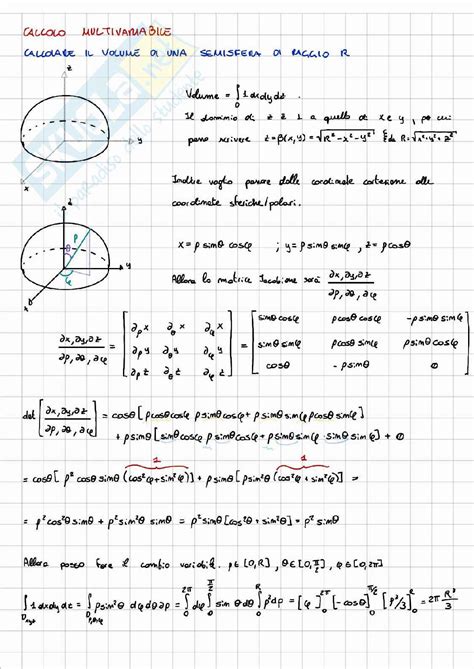 CALCOLO MULTIVARIABILE
CALCOLARE IL VOLUME DI UNA SEMISFERA DI RAGGIO R
z
y
x
Volume = ∫_D 1 dxdydz.
Il dominio di z è a quello di x e y, per cui
posso scrivere z = β(x,y) = √(R²-x²-y²) {da R = √(x²+y²+z²)
Inoltre voglio passare dalle coordinate cartesiane alle
coordinate sferiche/polari.
z
ρ
θ
φ
y
x
x = ρ sinθ cosφ ; y = ρ sinθ sinφ , z = ρ cosθ
Allora la matrice Jacobiana sarà ∂x,∂y,∂z / ∂ρ,∂θ,∂φ
∂x,∂y,∂z / ∂ρ,∂θ,∂φ = [∂ρ x ∂θ x ∂φ x ; ∂ρ y ∂θ y ∂φ y ; ∂ρ z ∂θ z ∂φ z] = [sinθ cosφ ρcosθ cosφ -ρ sinθ sinφ ; sinθ sinφ ρcosθ sinφ ρ sinθ cosφ ; cosθ -ρ sinθ 0]
det [∂x,∂y,∂z / ∂ρ,∂θ,∂φ] = cosθ [ρcosθcosφ ρ sinθcosφ + ρ sinθ sinφ ρcosθ sinφ]
+ ρ sinθ [sinθ cosφ ρ sinθcosφ + ρ sinθ sinφ · sinθ sinφ] + 0
1 1
= cosθ [ρ² cosθ sinθ (cos²φ + sin²φ)] + ρ sinθ [ρ sin²θ (cos²φ + sin²φ)] =
= ρ² cos²θ sinθ + ρ² sin²θ sinθ = ρ² sinθ [cos²θ + sin²θ] = ρ² sinθ
Allora posso fare il cambio variabili. ρ∈[0,R], θ∈[0,π/2], φ∈[0,2π]
∫_Dxyz 1 dxdydz = ∫_Dρθφ ρ sin²θ dφdθdρ = ∫₀^2π dφ ∫₀^π/2 sinθ dθ ∫₀^R ρ² dρ = [φ]₀^2π [-cosθ]₀^π/2 [ρ³/3]₀^R = 2π R³/3